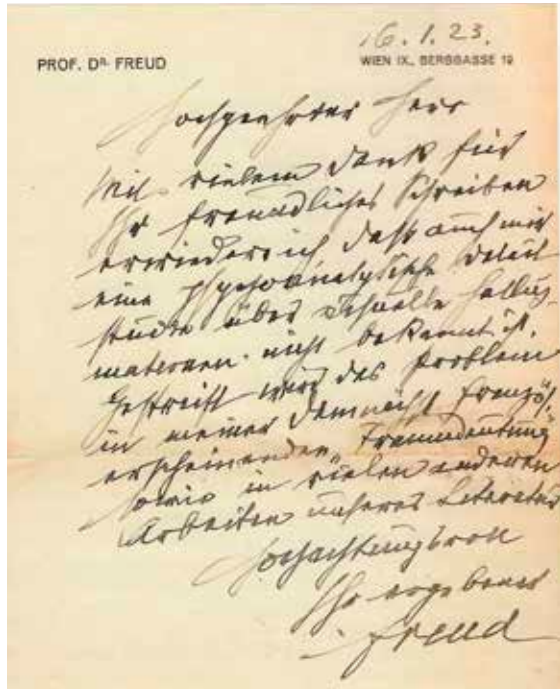 16. 1. 23.
PROF. DR. FREUD
WIEN IX., BERGGASSE 19
Hochgeehrter Herr
Mit vielem Dank für
Ihr freundliches Schreiben
erwiedere ich daß auch mir
eine psychoanalytische Detail
studie über visuelle Hallu
nicht bekannt ist.
Gestreift wird das Problem
in meiner demnächst französ.
erscheinenden „Traumdeutung
sowie in vielen anderen
Arbeiten unserer Literatur
Hochachtungsvoll
Ihr ergebener
Freud